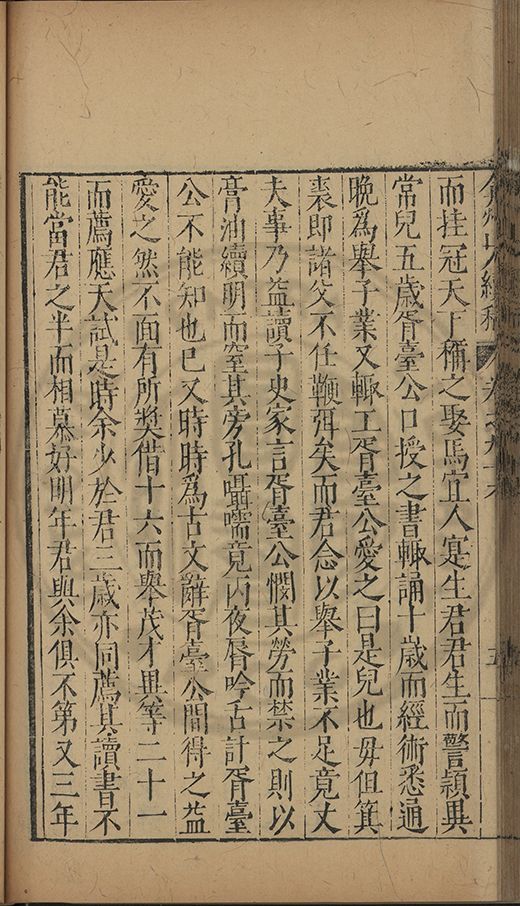 弇州山人續稿 卷之九十六 五
而挂冠天下稱之娶馬宜人寔生君君生而警穎異
常兒五歲胥臺公口授之書輙誦十歲而經術悉通
晚為舉子業又輙工胥臺公愛之曰是兒也毋但箕
裘即諸父不任鞭弭矣而君念以舉子業不足竟丈
夫事乃益讀子史家言胥臺公憫其勞而禁之則以
膏油續明而窒其旁孔囁嚅竟丙夜唇吟舌計胥臺
公不能知也已又時時為古文辭胥臺公間得之益
愛之然不面有所獎借十六而舉茂才異等二十一
而薦應天試是時余少於君三歲亦同薦其讀書不
能當君之半而相慕好明年君與余俱不第又三年